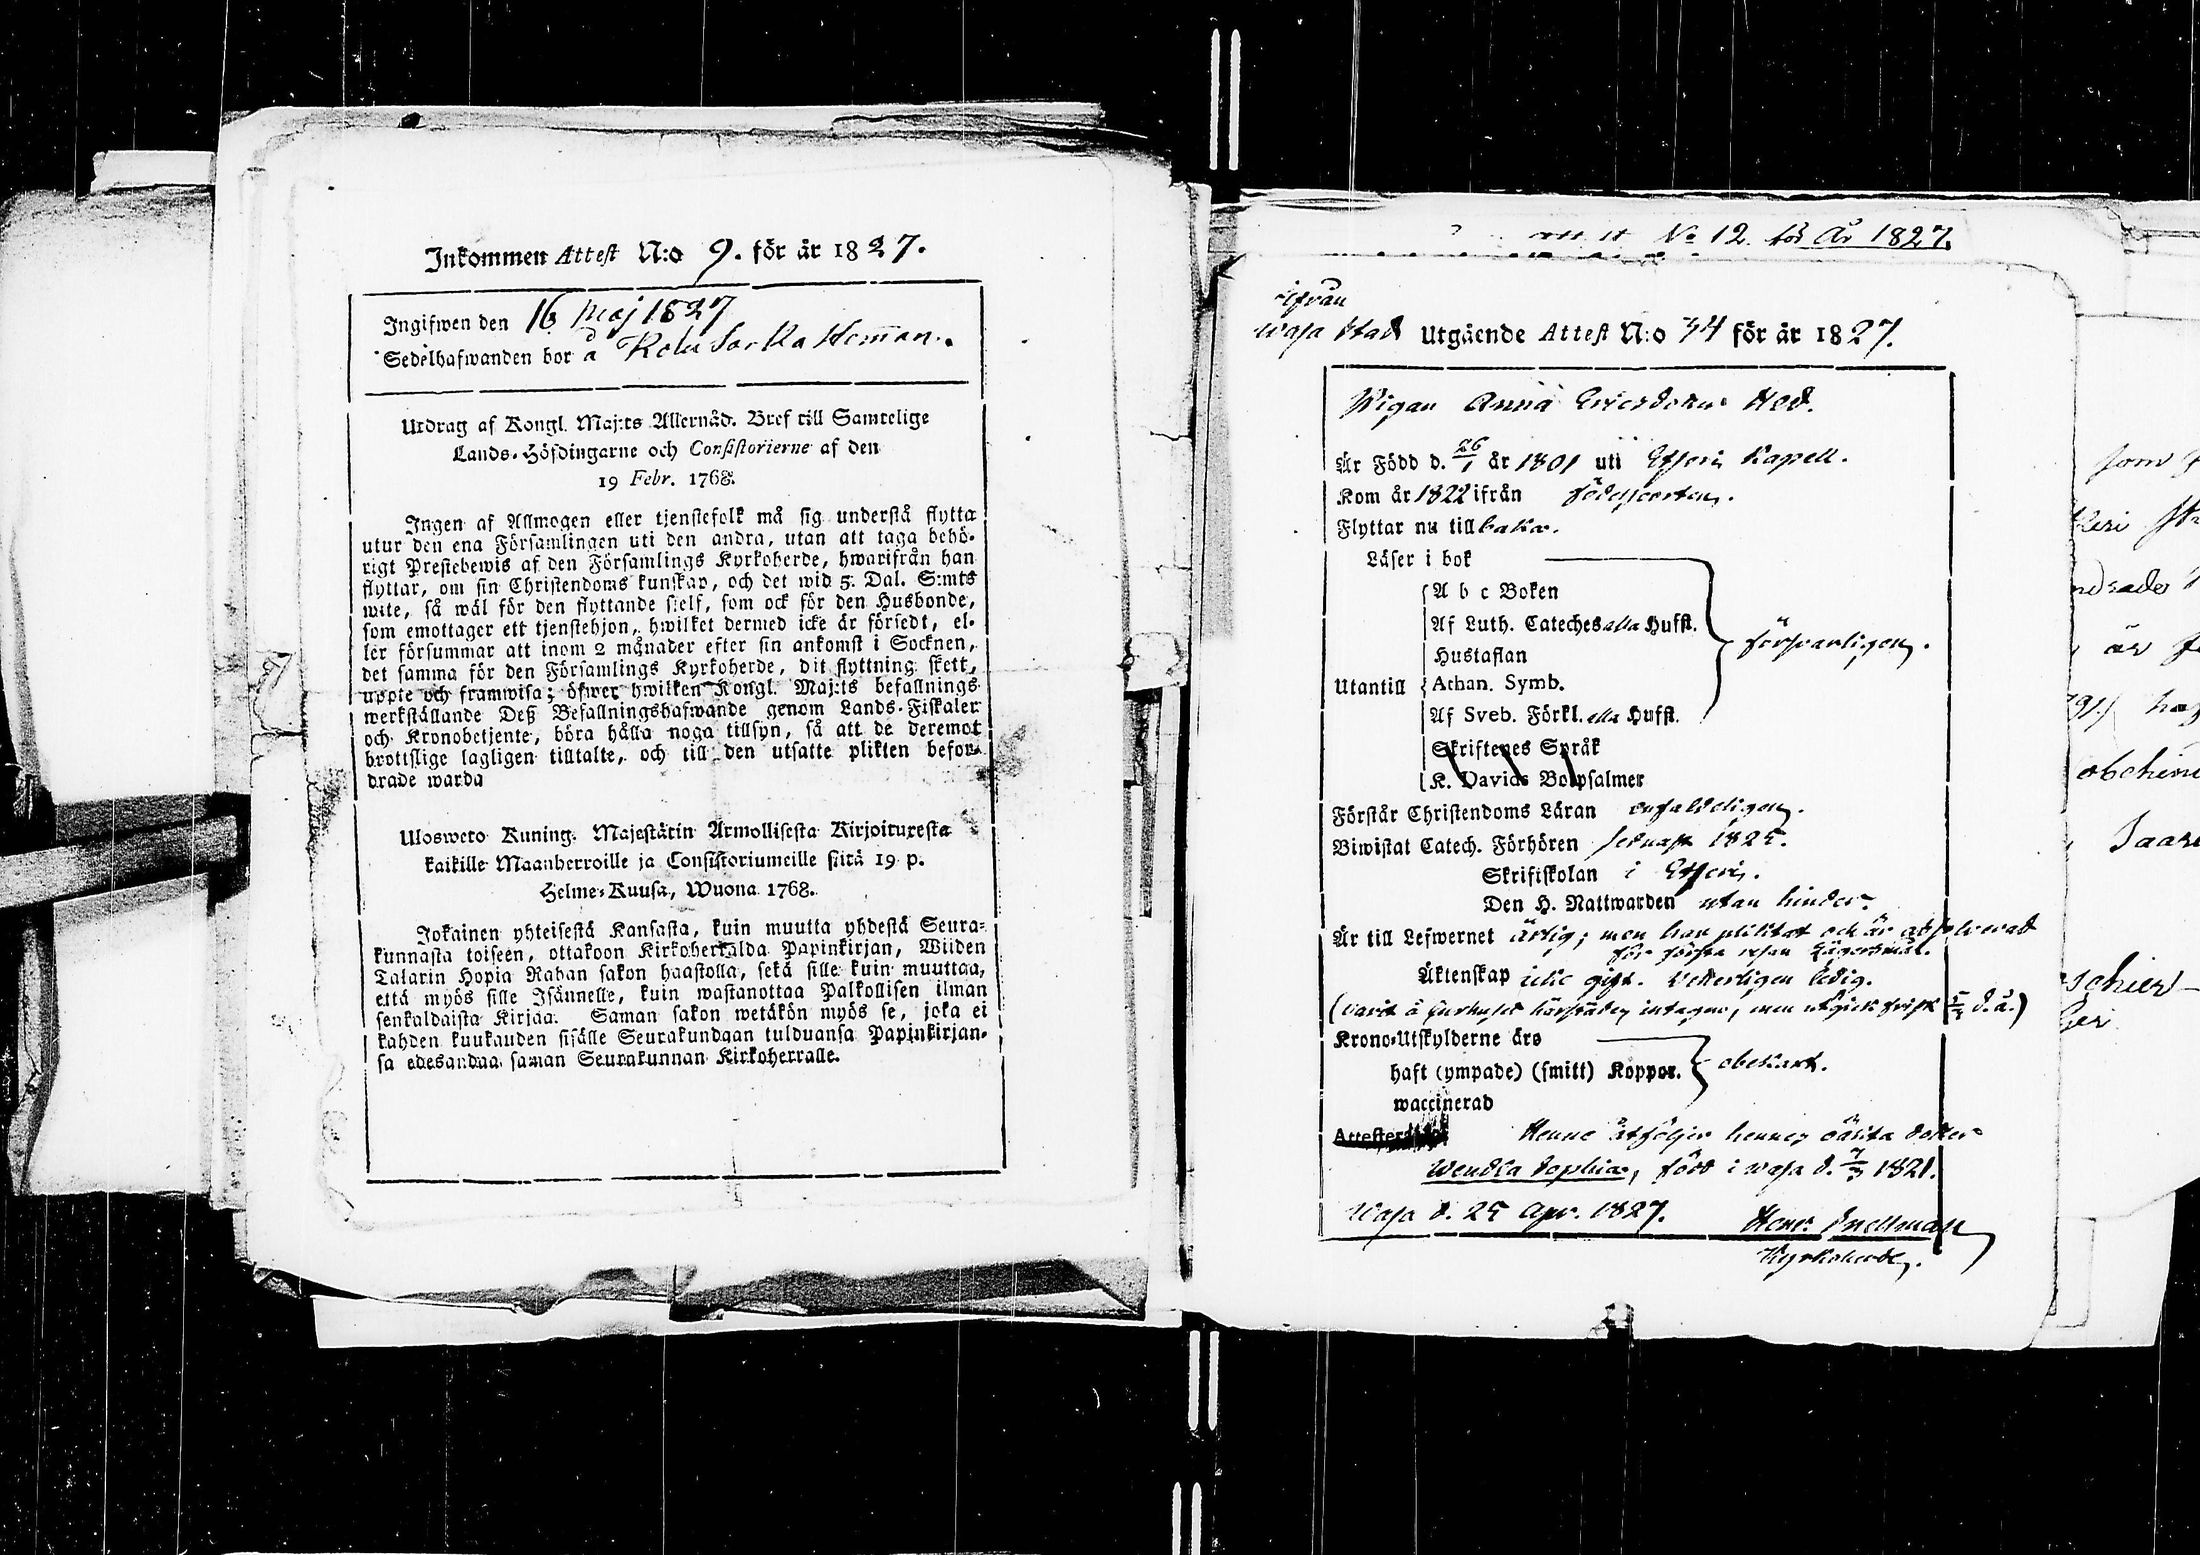 Inkommen Attest N:o 9. för år 1827.
Ingifwen den 16 Maj 1827
Sedelhafwanden bor å Heman.
Utdrag af Kongl. Maj:ts Allernåd. Bref till Samtelige
Lands-Höfdingarne och Consistorierne af den
19 Febr. 1768.
Ingen af Allmogen eller tjenstefolk må sig understå flytta
utur den ena Församlingen uti den andra, utan att taga behö-
rigt Prestebewis af den Församlings Kyrkoherde, hwarifrån han
flyttar, om sin Christendoms kunskap, och det wid 5. Dal. S:mts
wite, så wäl för den flyttande sjelf, som ock för den Husbonde,
som emottager ett tjenstehjon, hwilket dermed icke är försedt, el-
ler försummar att inom 2 månader efter sin ankomst i Socknen,
det samma för den Församlings Kyrkoherde, dit flyttning skett,
uppte och framwisa; öfwer hwilken Kongl. Maj:ts befallnings
werkställande Deß Befallningshafwande genom Lands-Fiskaler
och Kronobetjente, böra hålla noga tillsyn, så att de deremot
brottslige lagligen tilltalte, och till den utsatte plikten befor-
drade warda
Ulosweto Kuning. Majestätin Armollisesta Kirjoituxesta
kaikille Maanherroille ja Consistoriumeille siitä 19 p.
Helme-Kuusa, Wuona 1768.
Jokainen yhteisestä Kansasta, kuin muutta yhdestä Seura-
kunnasta toiseen, ottakoon Kirkoherralda Papinkirjan, Wiiden
Talarin Hopia Rahan sakon haastolla, sekä sille kuin muuttaa,
että myös sille Isännelle, kuin wastanottaa Palkollisen ilman
senkaldaista Kirjaa. Saman sakon wetäkön myös se, joka ei
kahden kuukauden sisälle Seurakundaan tulduansa Papinkirjan-
sa edesandaa saman Seurakunnan Kirkoherralle.
No 12 för År 1827.
ifrån
Wasa Stad Utgående Attest N:o 34 för år 1827.
Pigan Anna Ericsdotter Hed.
Är Född d. 26/1 år 1801 uti Etseri Kapell.
Kom år 1822 ifrån födelseorten.
Flyttar nu tillbaka.
Läser i bok
A b c Boken
Af Luth. Cateches alla Hufst.
försvarligen.
Hustaflan
Utantill Athan. Symb.
Af Sveb. Förkl. alla Hufst.
Skriftenes Språk
K. Davids Botpsalmer
Förstår Christendoms Läran enfaldeligen.
Biwistat Catech. Förhören sednast 1825.
Skriftskolan i Etseri.
Den H. Nattwarden utan hinder.
Är till Lefwernet ärlig; men har pliktat och är absolverad
för första resan Lägersmål.
Äktenskap icke gift. Vetterligen ledig.
(varit å Curhuset härstädes intagen, men utgick frisk d. å.)
Krono-Utskylderne äro
haft (ympade) (smitt) Koppor.
obekant.
waccinerad
Henne åtföljer hennes oäkta dotter
Wendla Sophia, född i Wasa d. 1821.
Wasa d. 25 Apr. 1827.
Henr. Snellman
Kyrkoherde.
som
är
Saari